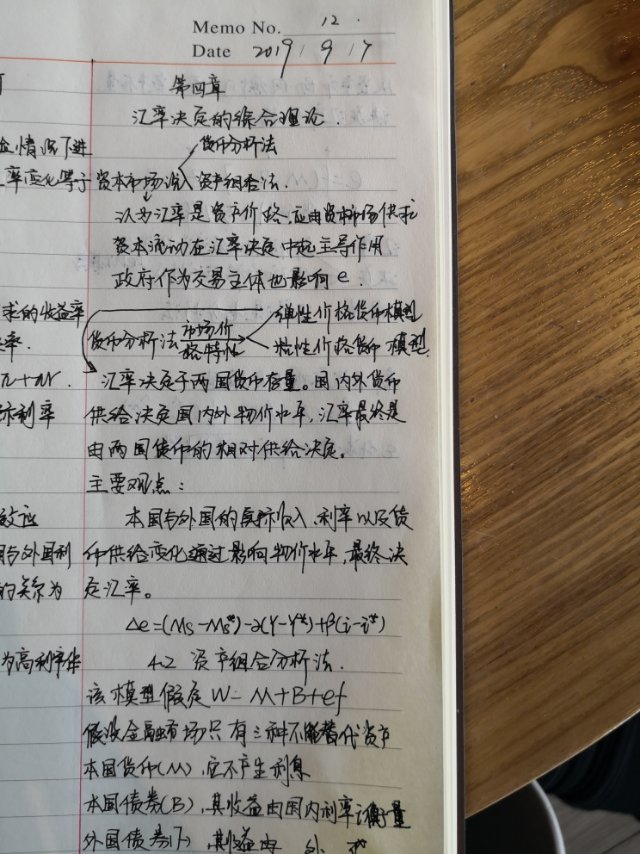 Memo No. 12.
Date 2019 / 9 / 17
第四章
汇率决定的综合理论.
货币分析法
资本市场说 资产组合法.
认为汇率是资产价格,应由资本市场供求
资本流动在汇率决定中起主导作用
政府作为交易主体也影响e.
弹性价格货币模型
货币分析法 市场价格特性
粘性价格货币模型
汇率决定于两国货币存量。国内外货币
供给决定国内外物价水平,汇率最终是
由两国货币的相对供给决定。
主要观点:
本国与外国的实际收入、利率以及货
币供给变化通过影响物价水平,最终决
定汇率。
Δe=(Ms-Ms*)-α(Y-Y*)+β(i-i*)
4.2 资产组合分析法.
该模型假定W=M+B+ef
假设金融市场只有三种不能替代资产
本国货币(M),它不产生利息
本国债券(B),其收益由国内利率i衡量
外国债券(F),其收益由 外
情况下进
率变化等于
求的收益率
率.
π+Δr.
际利率
效应
国与外国利
的关系为
为高利率